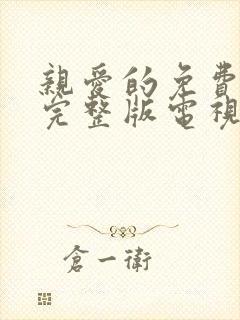 親愛的免費
完整版電視
倉一衛